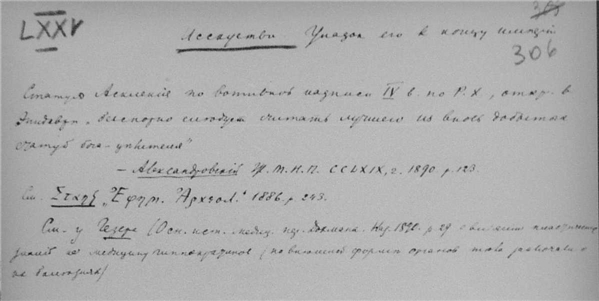 LXXV Искусство Упадок его к концу империи 306
Статую Асклепия по вотивной надписи IV в. по Р.Х., откр. в
Эпидавре, "бесспорно следует считать лучшею из вновь добытых
статуй бога-целителя"
– Александровский Ж.М.Н.П. CCLXIX, г. 1890. р. 123.
См. Στάης Ἐφημ. Ἀρχαιολ. 1886. р. 243.
См. у Гезера (Осн. ист. медиц. пер. Каз. 1890. р. 29 о
знаний в медицину гиппократиков (по внешней форме органов
на